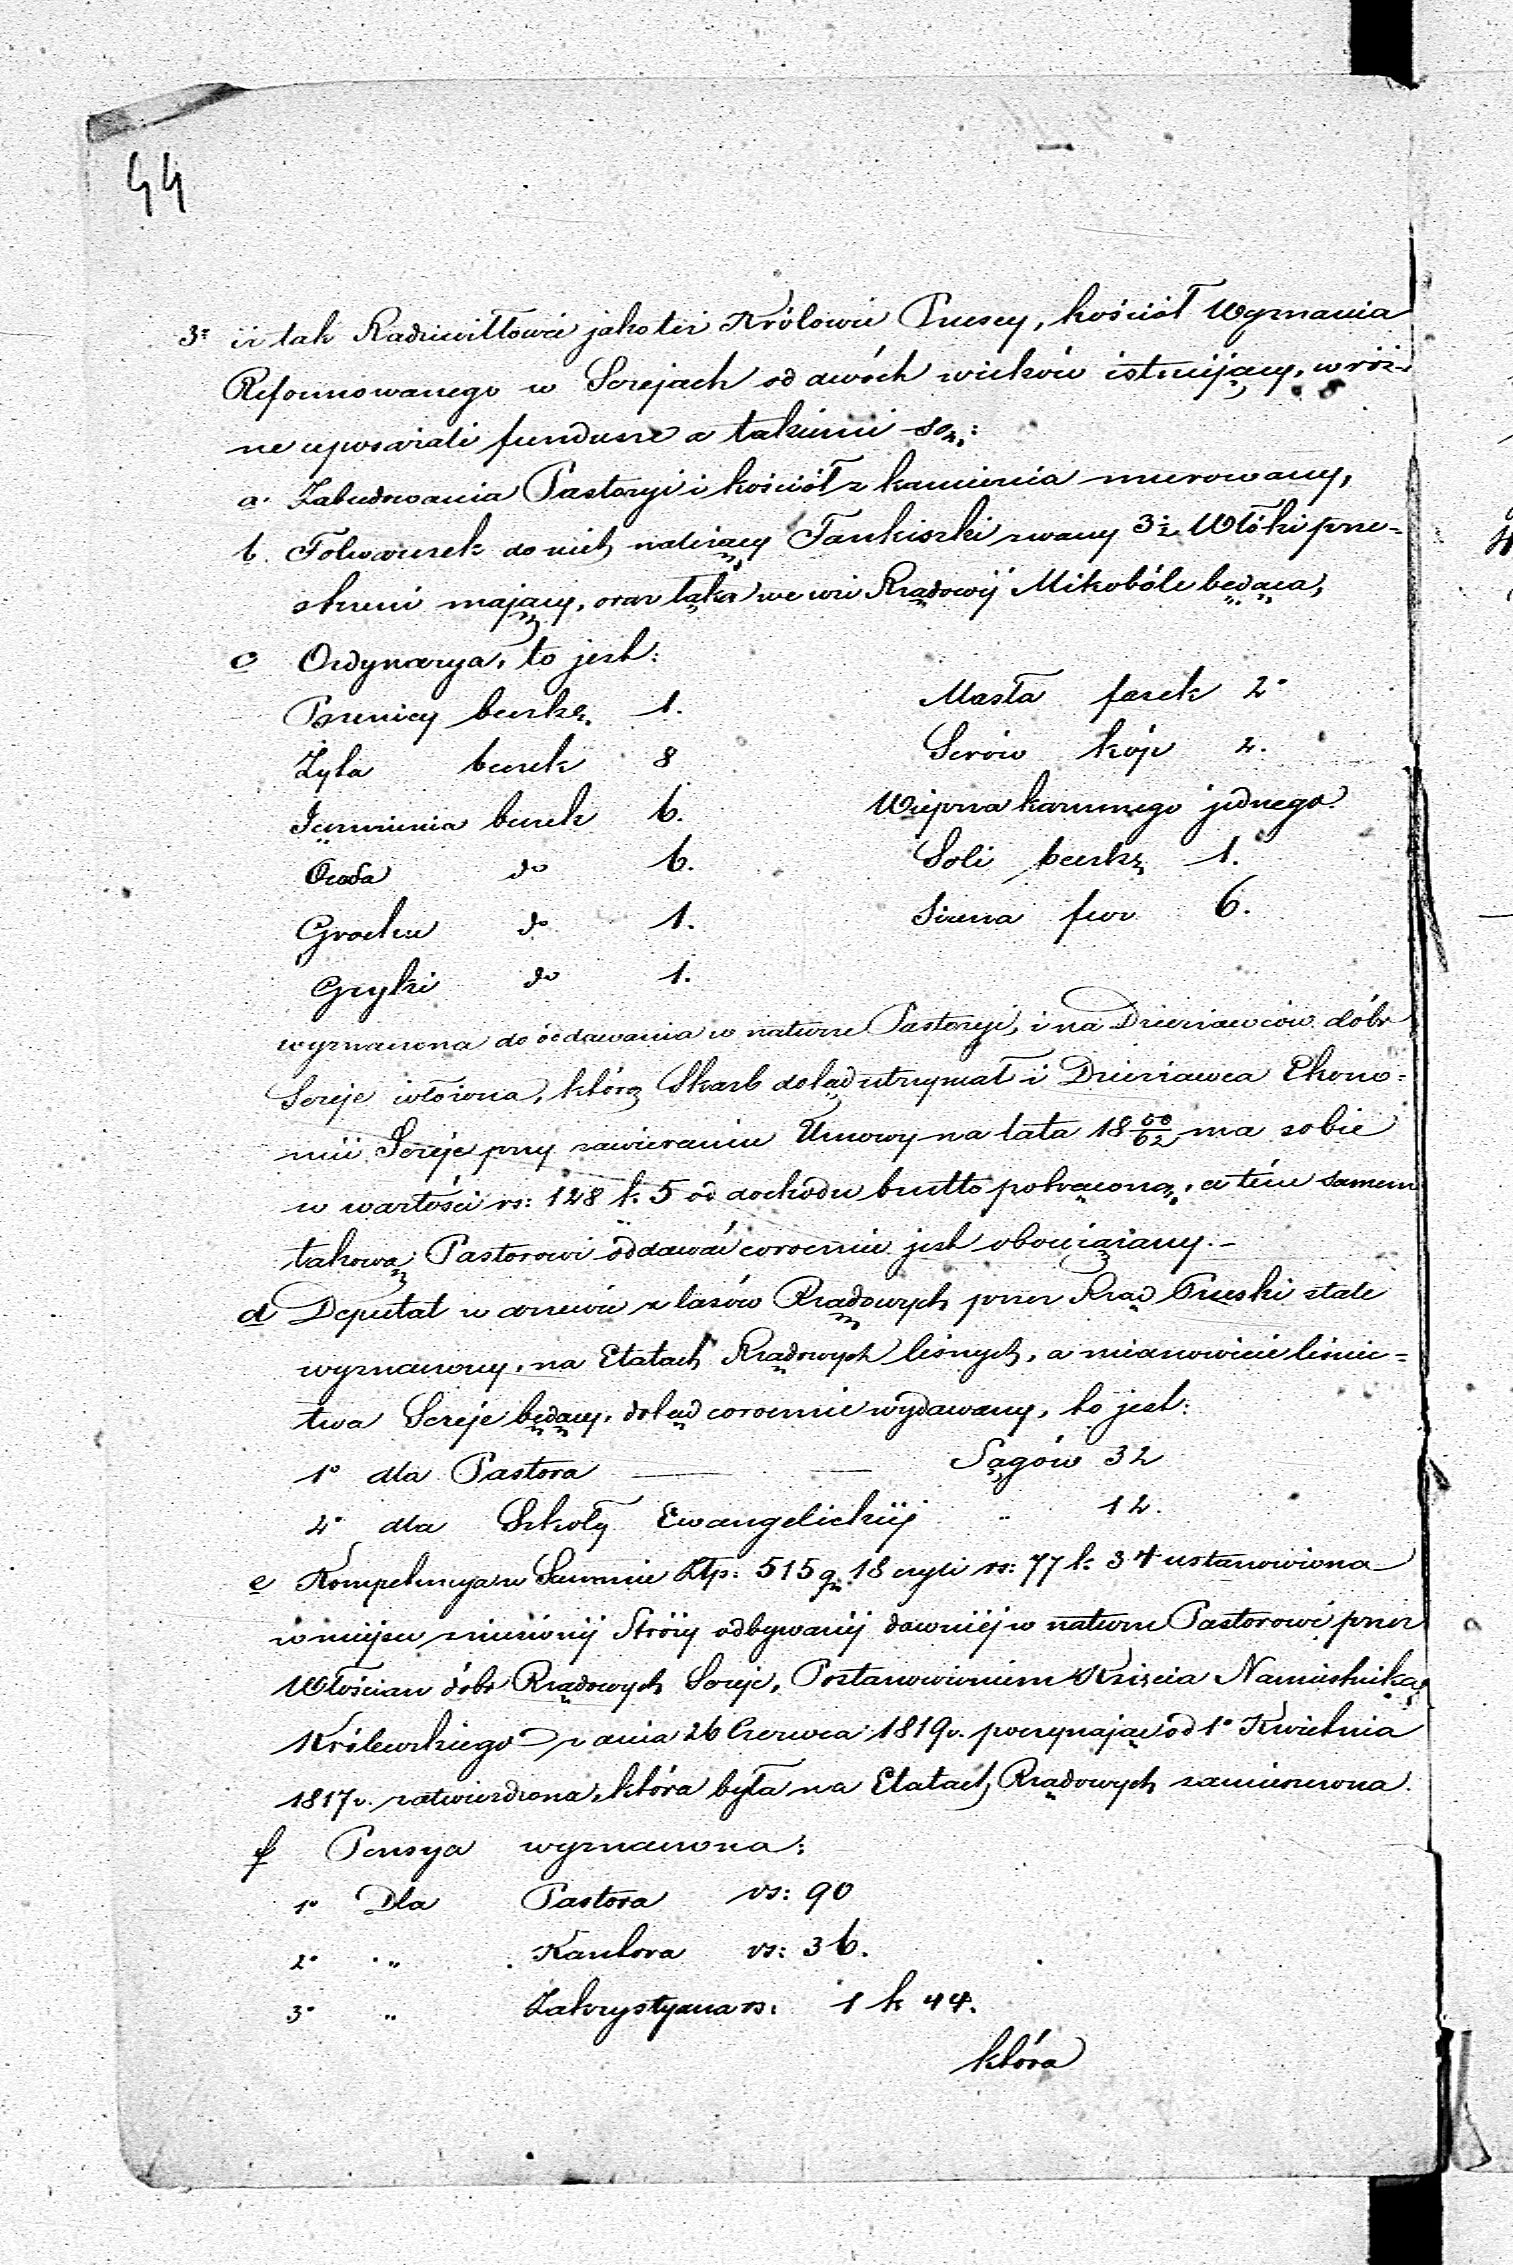 44
3° iż tak Radziwiłłowie jako też Królowie Pruscy, kościół Wyznania
Reformowanego w Serejach od dwóch wieków istniejący, w róż-
ne uposażali fundusze a takiemi są:
a. Zabudowania Pastoryi i kościół z kamienia murowany,
b. Folwarek do nich należący Tankiszki zwany 3½ Włóki prze-
strzeni mający, oraz łąka we wsi Rządowéj Mikobóle będąca,
c Ordynarya, to jest:
Pszenicy beczkę 1. Masła fasek 2.
Żyta beczek 8 Serów kóp 2.
Jęczmienia beczek 6. Wieprza karmnego jednego.
Owsa do 6. Soli beczkę 1.
Grochu do 1. Siana fur 6.
Gryki do 1.
wyznaczona do oddawania w naturze Pastoryi, i na Dzierżawców dóbr
Sereje włożona, którą Skarb dotąd utrzymał i Dzierżawca Ekono-
mii Sereje przy zawieraniu Umowy na lata 18 50/62 ma sobie
w wartości rs: 128 k. 5 od dochodu brutto potrąconą, a tém samem
takową Pastorowi oddawać corocznie jest obowiązany.-
d Deputat w drzewie z lasów Rządowych przez Rząd Pruski stale
wyznaczony, na Etatach Rządowych leśnych, a mianowicie leśnic-
twa Sereje będący, dotąd corocznie wydawany, to jest:
1° dla Pastora — — Sągów 32
2° dla Szkoły Ewangelickiéj „ 12.
e Kompetencya w Summie Złp: 515 g. 18 czyli rs: 77 k. 34 ustanowiona
w miejscu zniesionéj Stróży odbywanéj dawniéj w naturze Pastorowi przez
Włościan dóbr Rządowych Sereje, Postanowieniem Księcia Namiestnika
Królewskiego z dnia 26 Czerwca 1819 r. poczynając od 1° Kwietnia
1817 r. zatwierdzona, która była na Etatach Rządowych zamieszczona.
f Pensya wyznaczona:
1° Dla Pastora rs: 90
2° „ Kantora rs: 36.
3° „ Zakrystyana rs: 1 k 44.
która